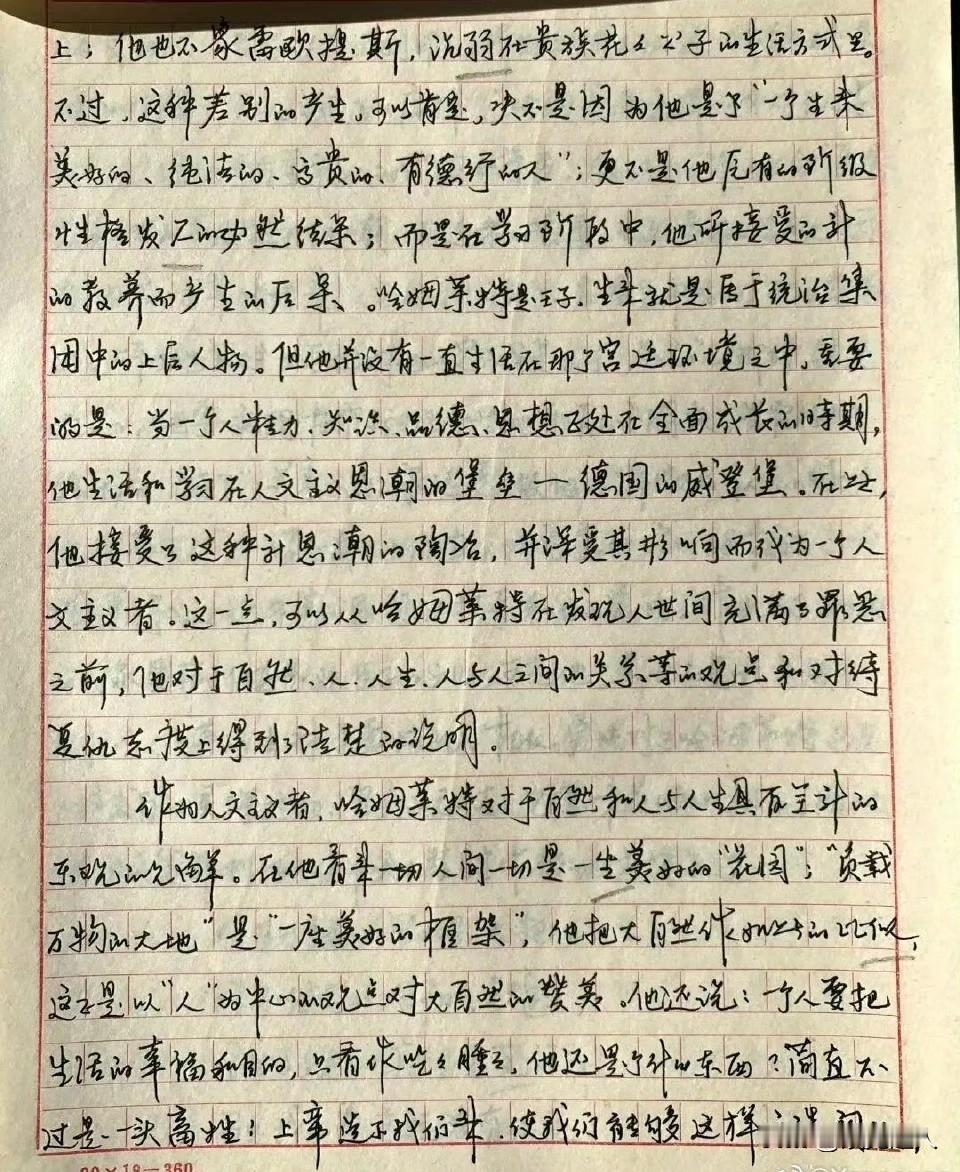 上；他也不象雷欧提斯，沉弱在贵族花々公子的生活方式里。
不过，这种差别的产生，可以肯定，决不是因为他是个“一个生来
美好的、纯洁的、高贵的、有德行的人”；更不是他固有的阶级
性格发展的必然结果；而是在学习阶段中，他所接受的
的教养而产生的后果。哈姆莱特是王子，生来就是属于统治集
团中的上层人物。但他并没有一直生活在那个宫廷环境之中，重要
的是：当一个人精力、知识、品德、思想正处在全面成长的时期，
他生活和学习在人文主义思潮的堡垒—德国的威登堡。在这，
他接受了这种思潮的陶冶，并深受其影响而成为一个人
文主义者。这一点，可以从哈姆莱特在发现人世间充满了罪恶
之前，他对于自然、人、人生、人与人之间的关系等的观点和对待
复仇态度上得到了清楚的说明。
作为人文主义者，哈姆莱特对于自然和人与人生具有全新的
乐观的见解。在他看来一切人间一切是一生美好的“花园”；“负载
万物的大地”是“一座美好的框架”，他把大自然作如此的比似，
这正是以“人”为中心的观点对大自然的赞美。他还说：一个人要把
生活的幸福和目的，只看作吃々睡々，他还是个什么东西？简直不
过是一头畜牲！上帝造下我们来，使我们能够这样
20×18=360